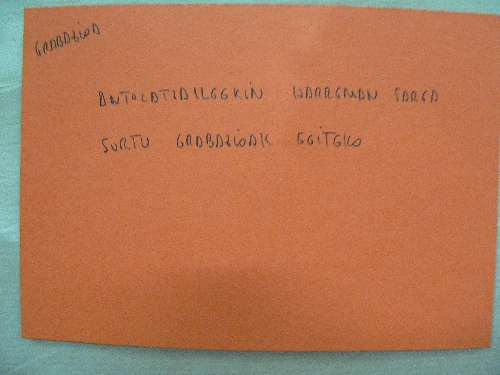 GRABAZIOA
ANTOLATZAILEEKIN HARREMAN SAREA
SORTU GRABAZIOAK EGITEKO